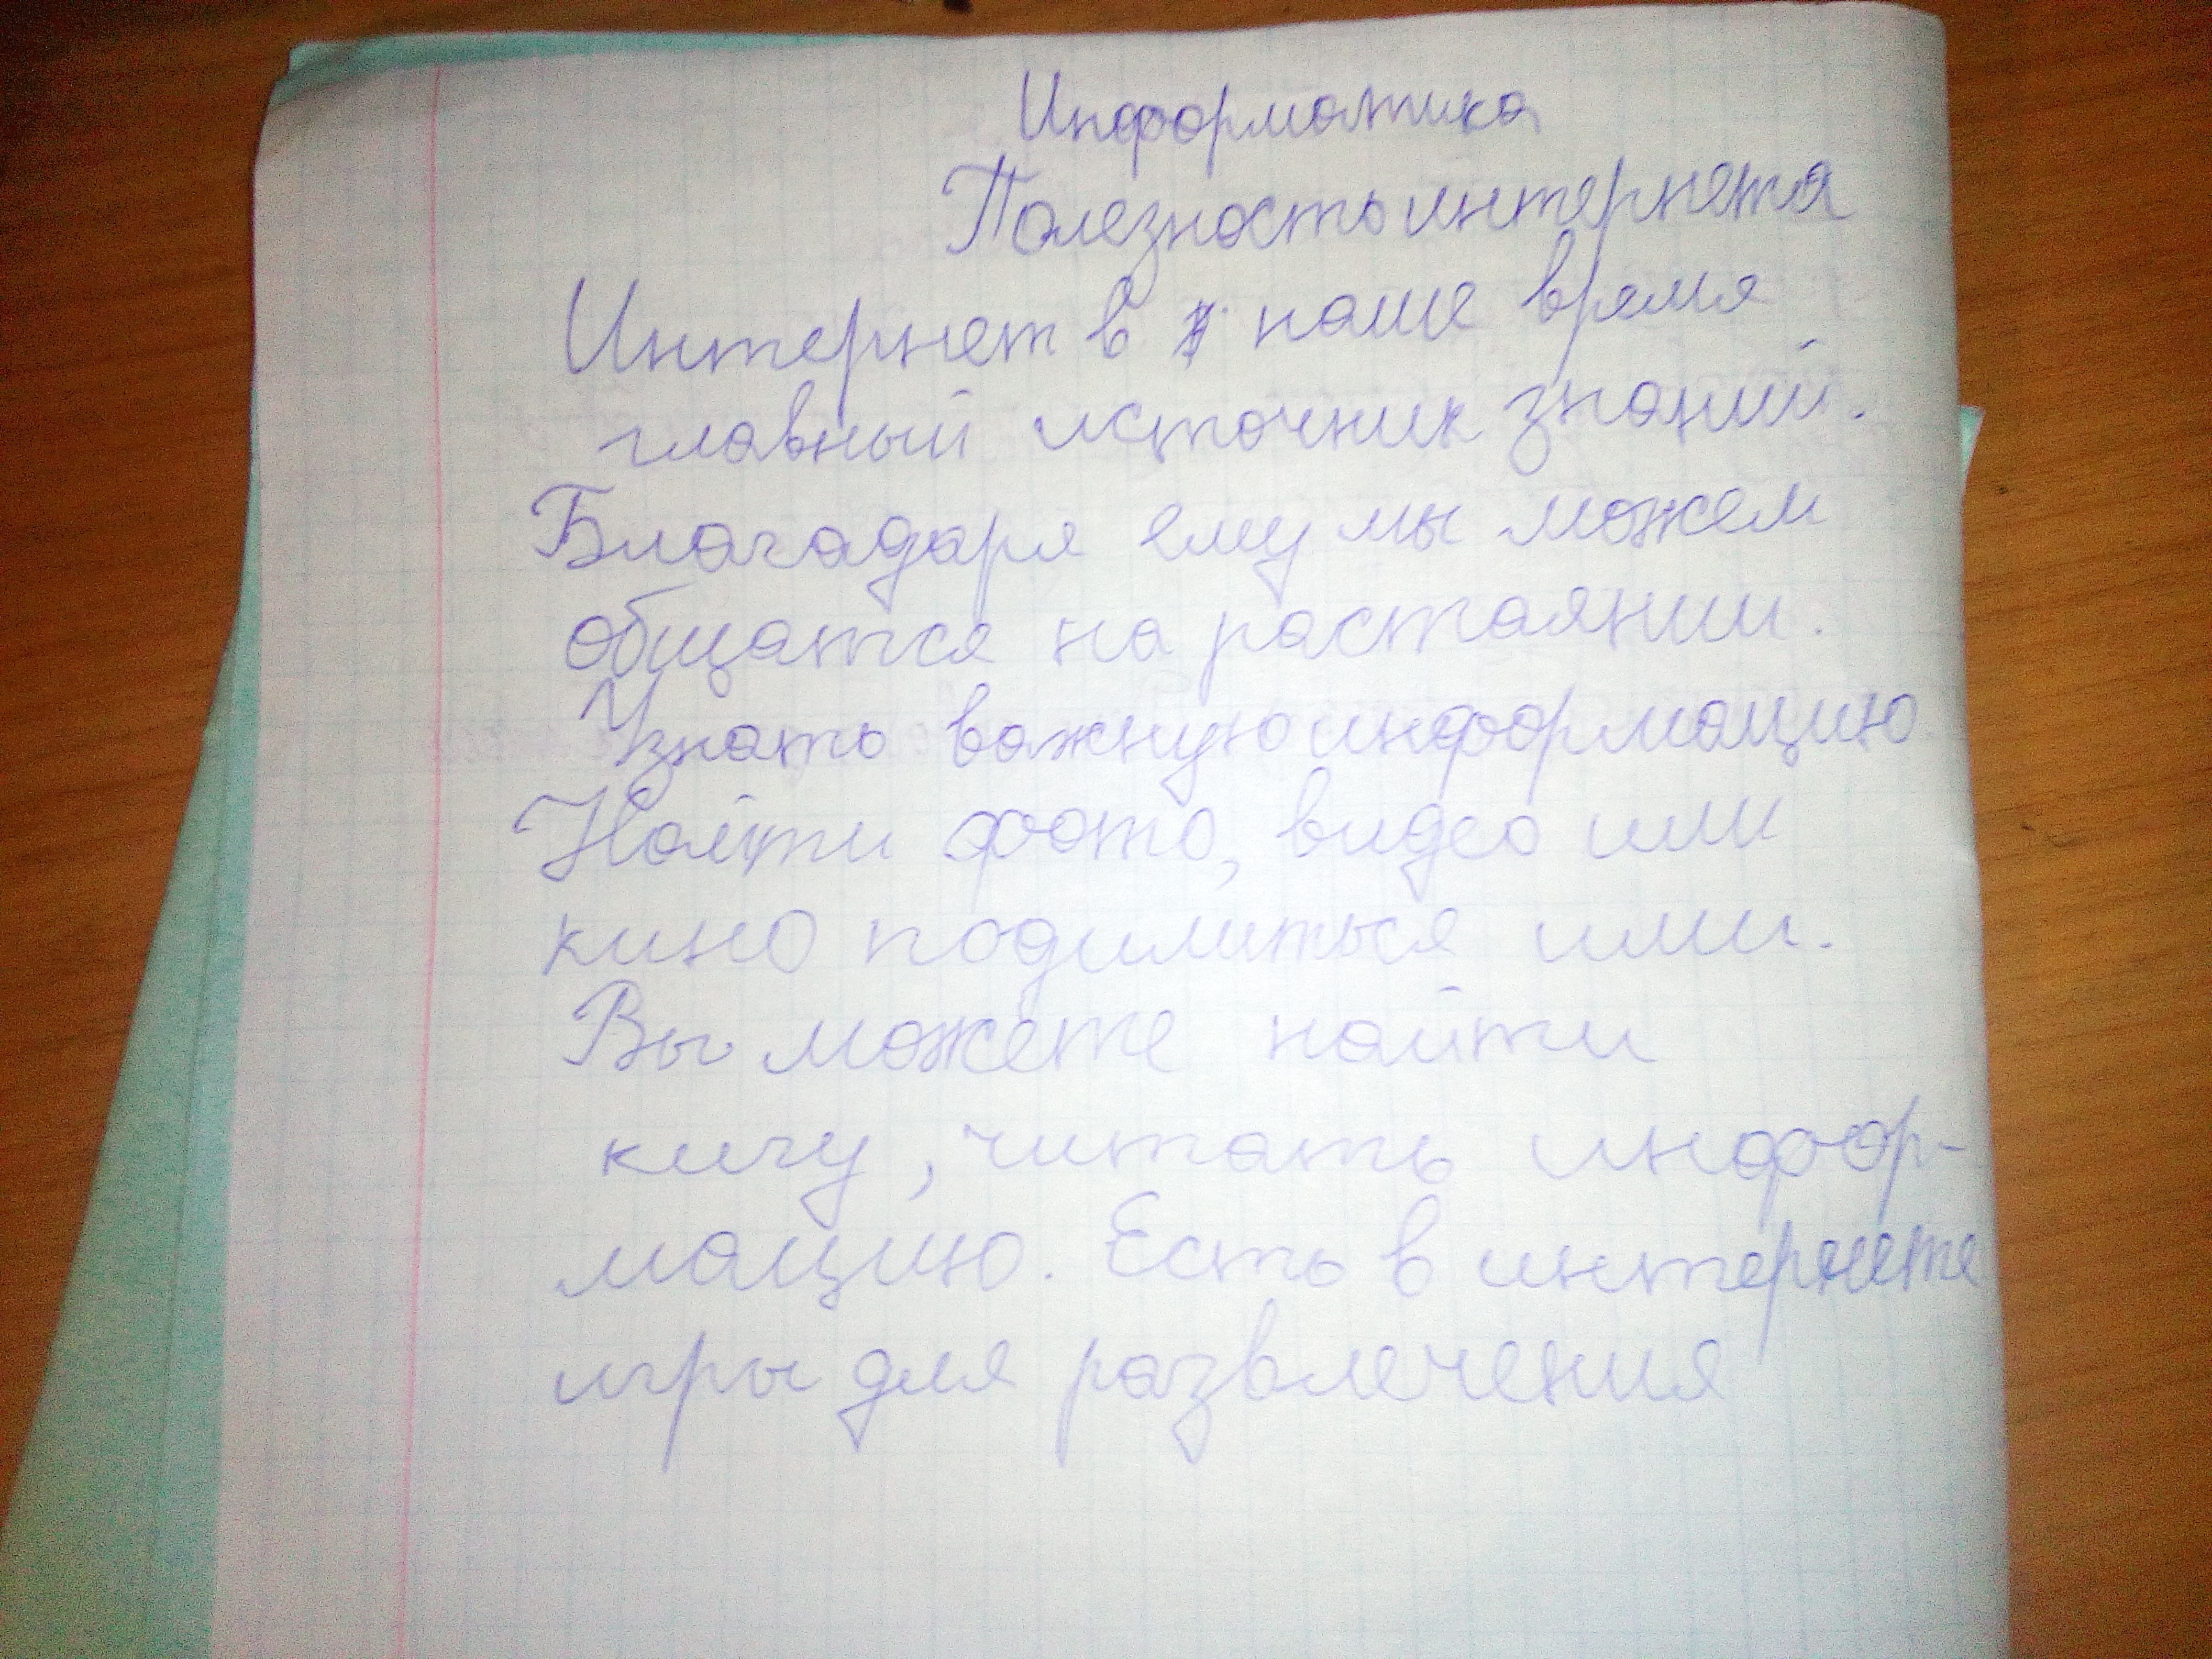 Информатика
Полезность интернета
Интернет в наше время
главный источник знаний.
Благадаря ему мы можем
общатся на растаянии.
Узнать важную информацию
Найти фото, видео или
кино подилиться ими.
Вы можете найти
кигу, читать инфор-
мацию. Есть в интернете
игры для развлечения